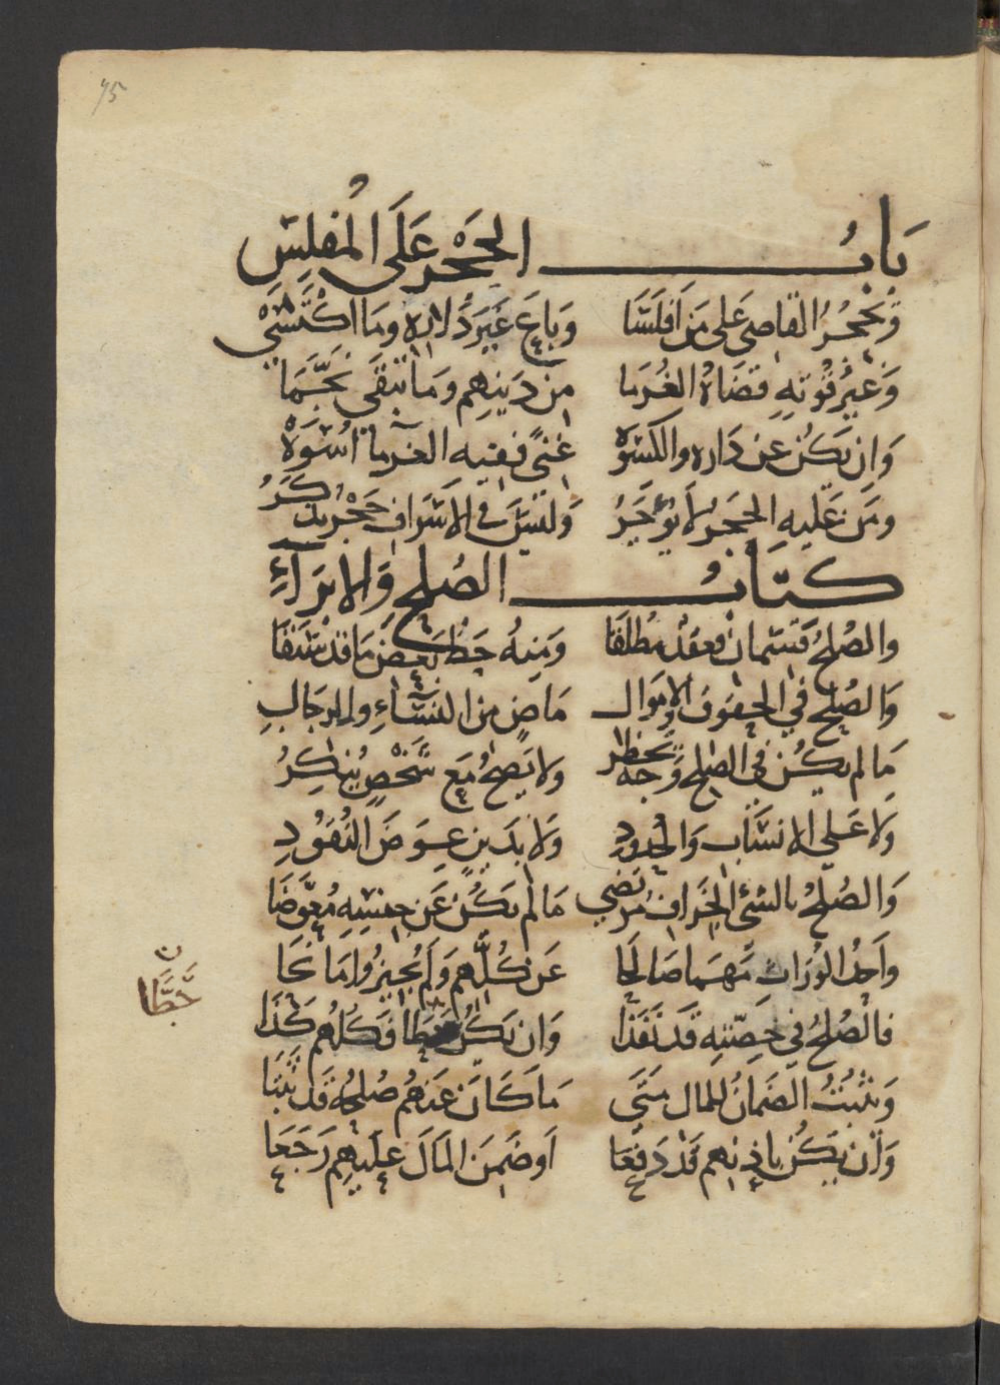 75
بَابُ الحَجْرِ عَلَى المُفْلِسِ
وَيَحْجُرُ القاضي عَلى مَن اَفلَسَا وَبَاعَ غَيرَ دُلَارِهِ ومَا اكْتَسَى
وَغَيرُ قُوتِهِ قضَاهُ الغُرَمَا مِن دَينِهِم وَمَا تبَقَى نَجَّمَا
وَان يَكُن عَن دَارِه والكَسْوَة غنىً ففيه الغرمآ اسْوَة
ومَن عَليهِ الحَجَرُ لَا يُؤَجَرُ وَليسَ في الاسْرَافِ حَجْرٌ يذكَرُ
كتَابُ الصُلحِ وَالابْرَآءِ
والصُلحُ قسمَانِ فعَقدٌ مطْلَقَا وَمنِهُ حَطُّ بَعضِ مَا قد سَبَقَا
وَالصُلحُ في الحقوقِ والاموَال مَاضٍ من النسَّاءِ والرجَالِ
مَا لم يكُن في الصلح وَجه يحظرُ ولا يَصحُ مَع شَخْصٍ يُنكِرُ
وَلا عَلى الانسَابِ وَالحُدودِ وَلا بدَينٍ عِوَضَ النقُودِ
وَالصُلحُ بالشئ الجزَافِ مُرتضي مَا لم يَكُن عَن جنسِهِ مُعَوَّضَا
واَحدُ الوُرَاثِ مَهمَا صَالحَا عَن كُلِّهِم وَلَم يُجيزُوا مَا نحَا
فالصُلحُ في حِصّتهِ قَد نَفَذَا وَان يَكُن حَطا فَكلُهم كَذَا
حَطَّا
وَيَثبُتُ الضَمَانُ للمالِ مَتَى مَا كَانَ عَنهُم صُلحُهُ قد ثبتَا
وَان يَكُن باذنِهم قَد دَفَعَا اَو ضَمِنَ المَالَ عَليهِم رَجَعَا